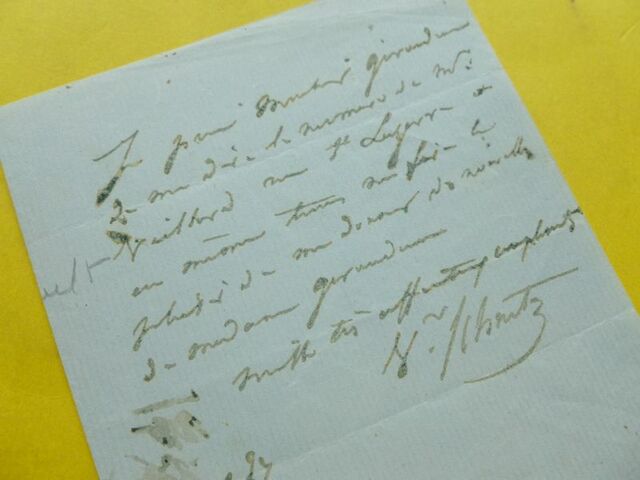 Je prie Monsieur Girardin
de me dire le numero de Mr
rue St Lazare &
en même temps me faire le
plaisir de me donner des nouvelles
de Madame Girardin
mille très affectueux
Vr Schnetz
27